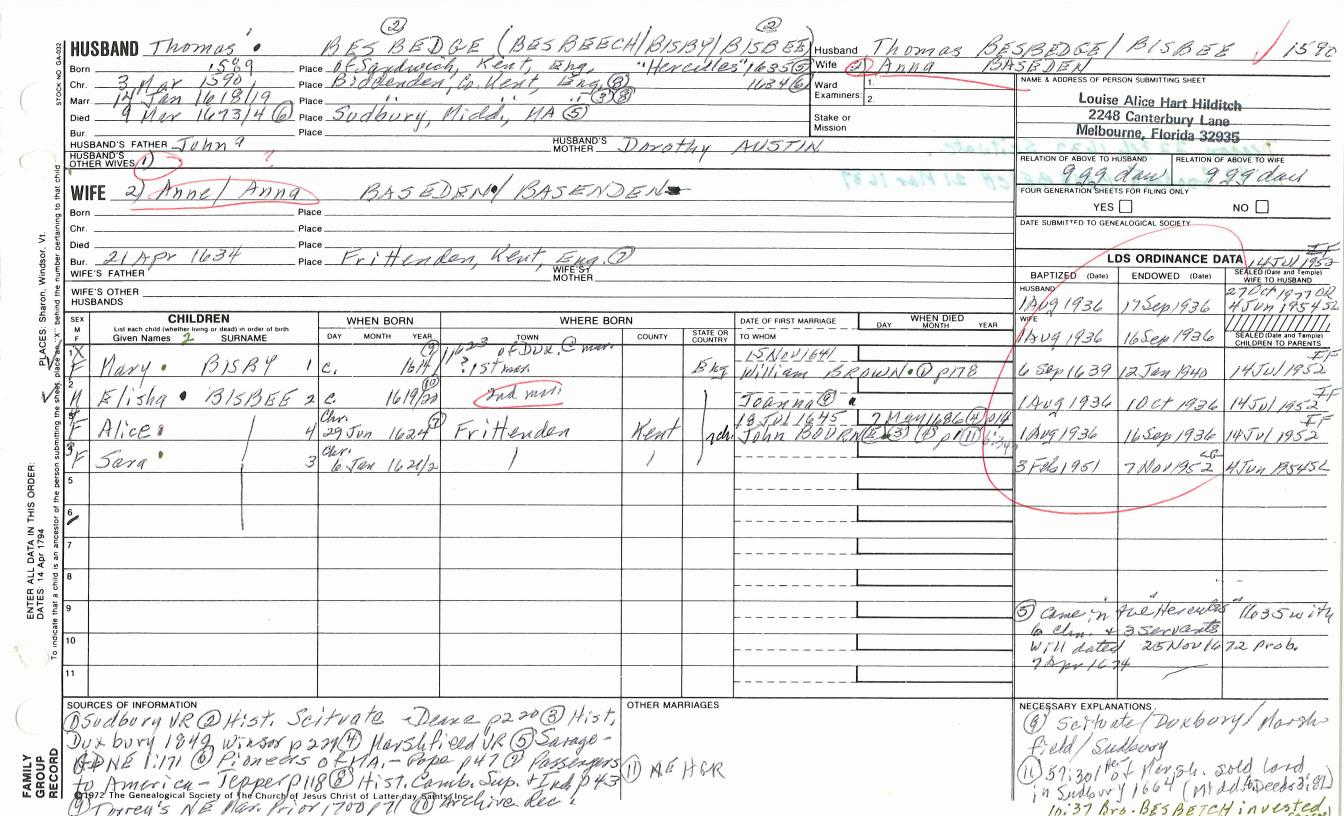 ② ②
HUSBAND Thomas BESBEDGE (BESBEECH/BISBY/BISBEE) Husband Thomas BESBEDGE/BISBEE 1590
Born 1589 Place of Sandwich, Kent, Eng. "Hercules" 1635 ⑤ Wife 2) Anna BASEDEN
Chr. 3 Mar 1590 Place Biddenden, Co. Kent, Eng. 1634 ⑥ Ward Examiners 1. 2.
Marr 14 Jan 1618/19 Place " " " ③⑧
Died 9 Mar 1673/4 ⑥ Place Sudbury, Midd, MA ⑤ Stake or Mission
Bur. Place
HUSBAND'S FATHER John ? HUSBAND'S MOTHER Dorothy AUSTIN
HUSBAND'S OTHER WIVES 1) ?
NAME & ADDRESS OF PERSON SUBMITTING SHEET
Louise Alice Hart Hilditch
2248 Canterbury Lane
Melbourne, Florida 32935
RELATION OF ABOVE TO HUSBAND RELATION OF ABOVE TO WIFE
9gg dau 9gg dau
FOUR GENERATION SHEETS FOR FILING ONLY
YES NO
DATE SUBMITTED TO GENEALOGICAL SOCIETY
WIFE 2) Anne/Anna BASEDEN/BASENDEN
Born Place
Chr. Place
Died Place
Bur. 21 Apr 1634 Place Frittenden, Kent, Eng. ⑦
WIFE'S FATHER WIFE'S MOTHER
WIFE'S OTHER HUSBANDS
LDS ORDINANCE DATA 14 Jul 1952
BAPTIZED (Date) ENDOWED (Date) SEALED (Date and Temple) WIFE TO HUSBAND
HUSBAND 1 Aug 1936 17 Sep 1936 27 Oct 1977 4 Jun 1954 SL
WIFE 1 Aug 1936 16 Sep 1936 SEALED (Date and Temple) CHILDREN TO PARENTS
SEX M F CHILDREN WHEN BORN WHERE BORN DATE OF FIRST MARRIAGE WHEN DIED
List each child (whether living or dead) in order of birth
Given Names SURNAME DAY MONTH YEAR TOWN COUNTY STATE OR COUNTRY TO WHOM DAY MONTH YEAR
1 X F Mary BISBY 1 c. 1614 ⑨ 1623 of DUX. @ mar. ? 1st mar. Eng 15 Nov 1641 William BROWN p178 6 Sep 1639 12 Jan 1940 14 Jul 1952
2 M Elisha BISBEE 2 c. 1619/20 ⑩ 2nd mar. Joanna 1 Aug 1936 1 Oct 1936 14 Jul 1952
F Alice 4 Chr. 29 Jun 1624 ⑦ Frittenden Kent 18 Jul 1645 John BOURN 7 May 1686 ④ 1 Aug 1936 16 Sep 1936 14 Jul 1952
F Sara 3 Chr. 6 Jan 1621/2 3 Feb 1951 7 Nov 1952 4 Jun 1954 SL
5
6
7
8
9
10
11
⑤ Came in the Hercules 1635 with
6 chn. & 3 servants
Will dated 25 Nov 1672 Prob.
7 Apr 1674
SOURCES OF INFORMATION
① Sudbury VR ② Hist. Scituate - Deane p220 ③ Hist,
Duxbury 1849 Winsor p229 ④ Marshfield VR ⑤ Savage -
GDNE 1:171 ⑥ Pioneers of MA. - Pope p47 ⑦ Passengers
to America - Tepper p118 ⑧ Hist. Camb. Sup. & Ind p43
⑨ Torrey's NE Mar. Prior 1700 p71 ⑩ Archive Rec.
©1972 The Genealogical Society of The Church of Jesus Christ of Latter-day Saints Inc.
OTHER MARRIAGES
⑪ NEH&R
NECESSARY EXPLANATIONS
Scituate/Duxbury/Marsh-
field/Sudbury
⑪ 57:301 of Marsh. sold land
in Sudbury 1664 (Midd. Deeds 3:81)
10:37 Bro. BESBETCH invested
STOCK NO. GA-032
PLACES: Sharon, Windsor, Vt.
ENTER ALL DATA IN THIS ORDER:
DATES: 14 Apr 1794
To indicate that a child is an ancestor of the person submitting the sheet, place an "X" behind the number pertaining to that child
FAMILY GROUP RECORD